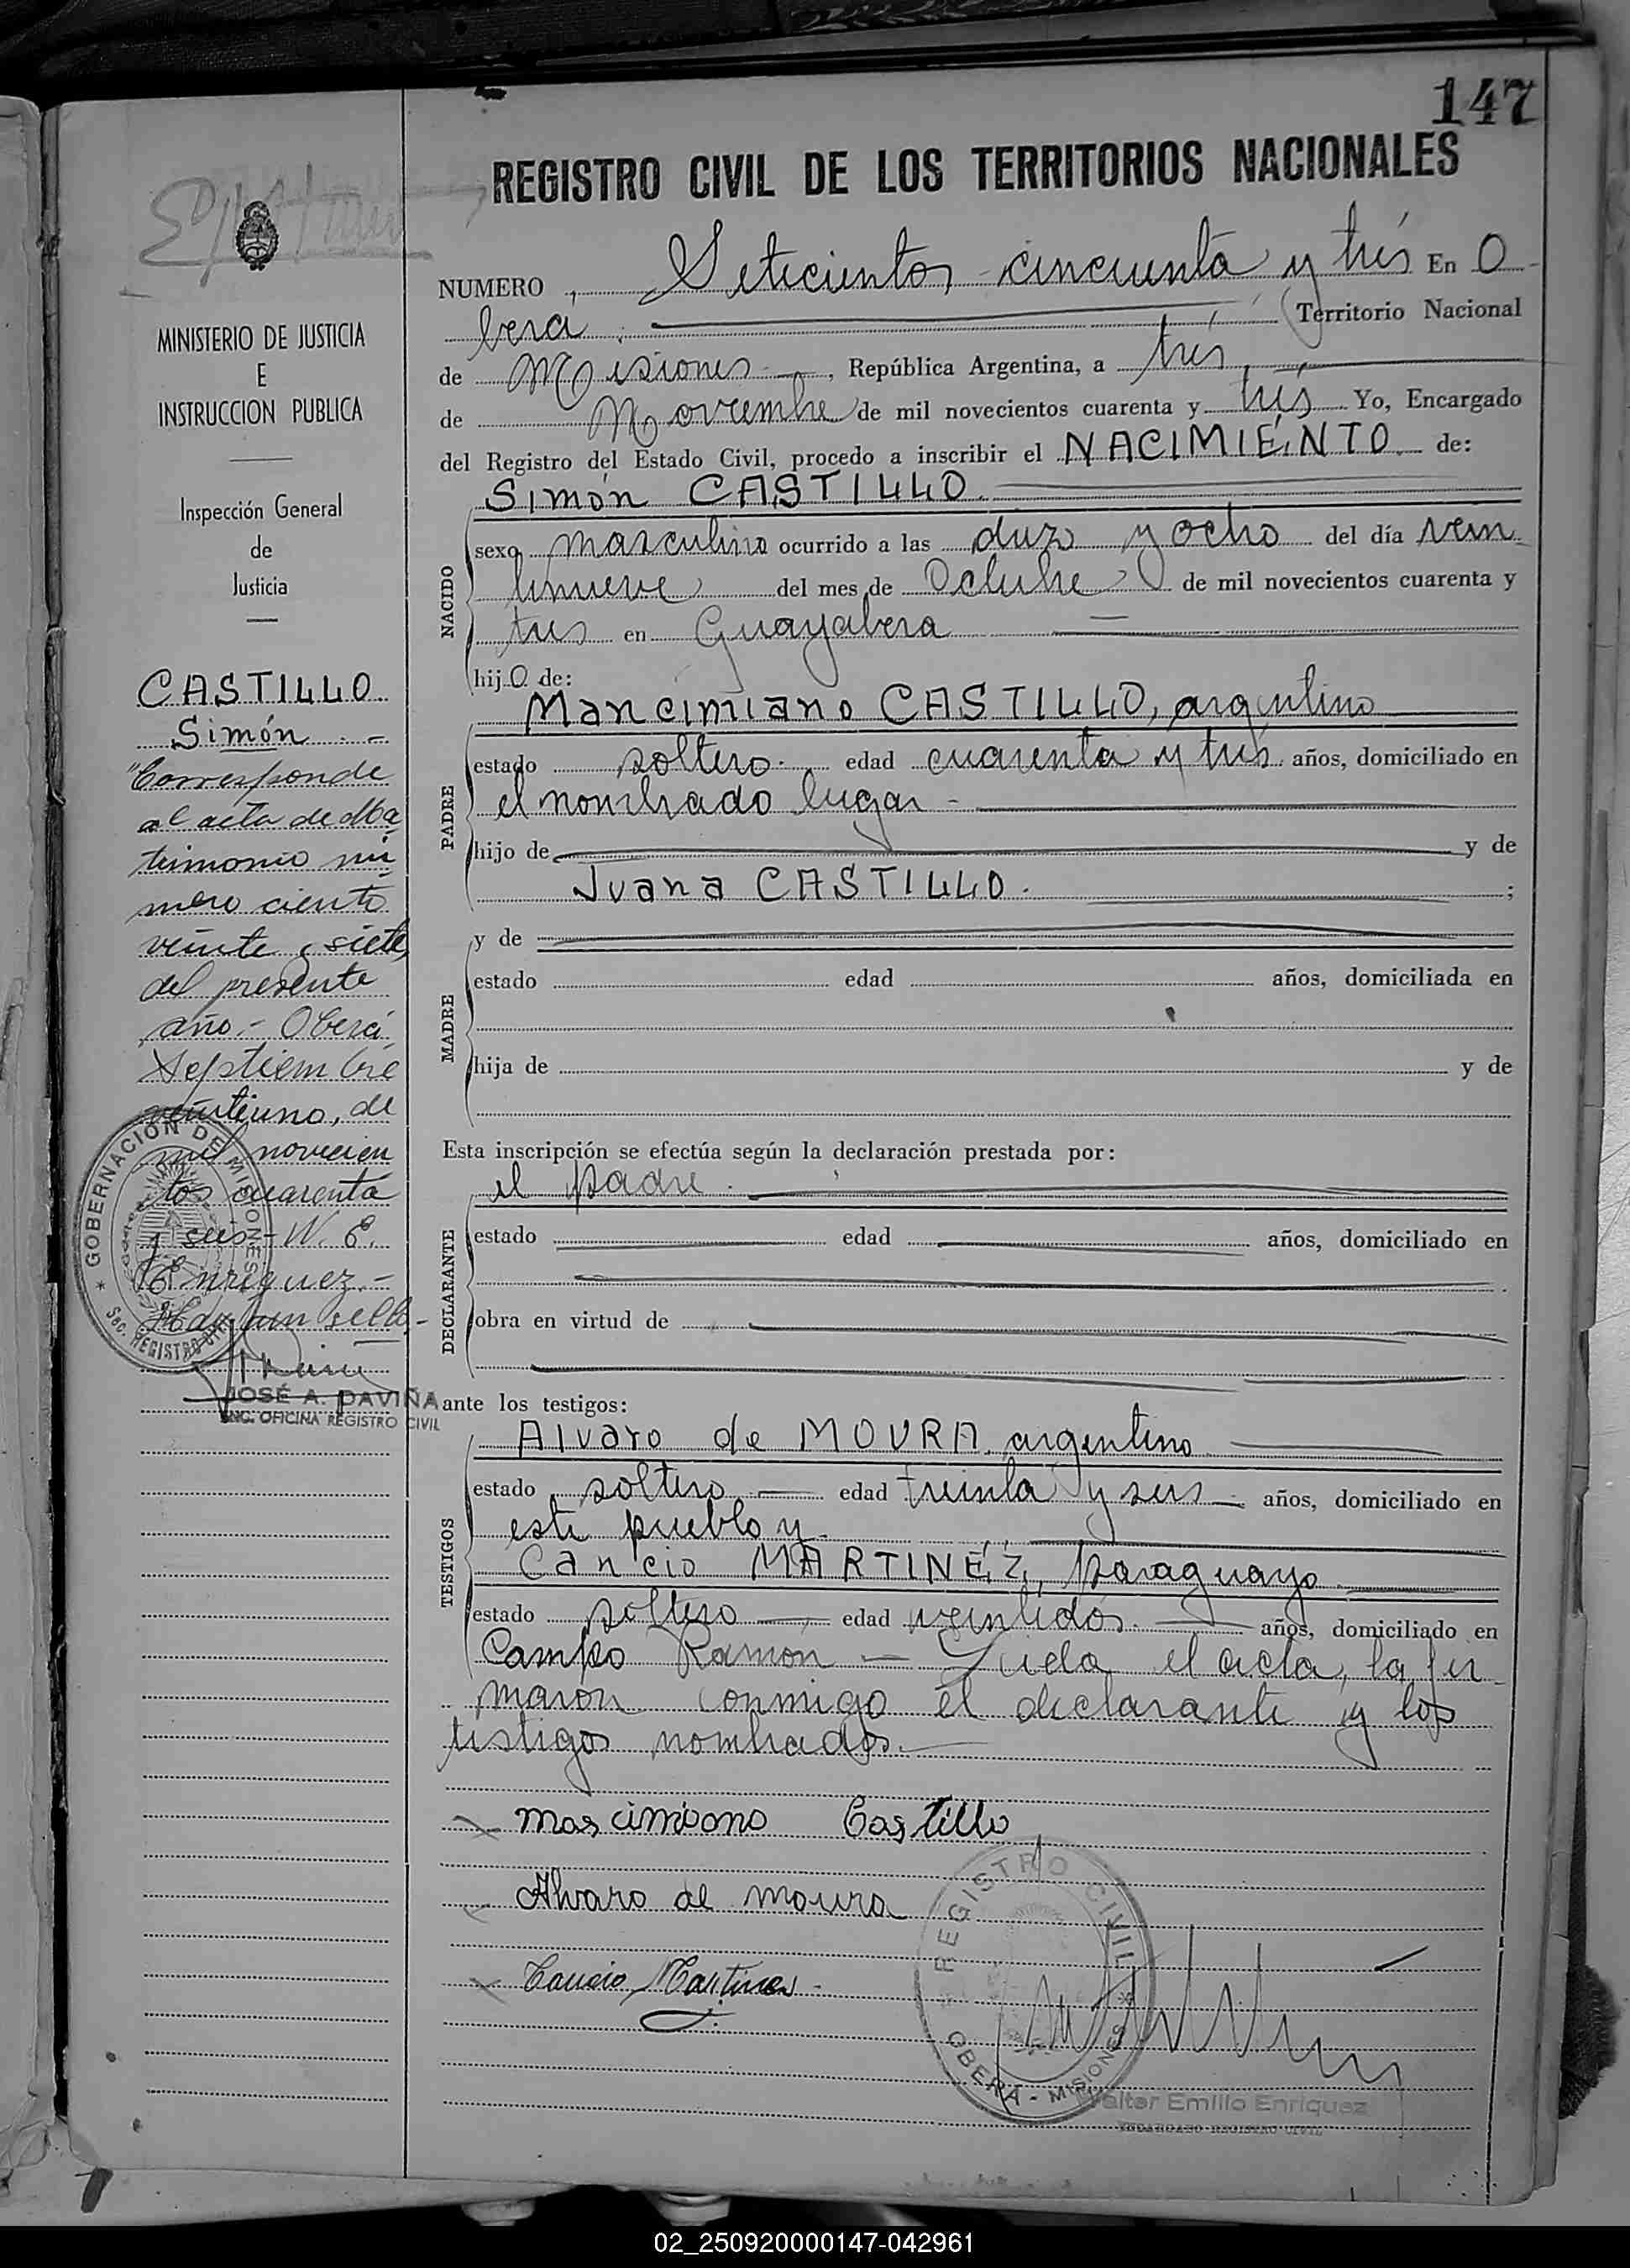 147
REGISTRO CIVIL DE LOS TERRITORIOS NACIONALES
NUMERO, Setecientos cincuenta y trés En O
bera. Territorio Nacional
de Misiones, República Argentina, a trés
de Noviembre de mil novecientos cuarenta y trés Yo, Encargado
del Registro del Estado Civil, procedo a inscribir el NACIMIENTO de:
Simón CASTILLO.
NACIDO
sexo masculino ocurrido a las diez y ocho del día vein
tinueve del mes de Octubre de mil novecientos cuarenta y
tres en Guayabera
hijo de:
PADRE
Mancimiano CASTILLO, argentino
estado soltero. edad cuarenta y tres años, domiciliado en
el nombrado lugar -
hijo de y de
Juana CASTILLO. ;
MADRE
y de
estado edad años, domiciliada en
hija de y de
Esta inscripción se efectúa según la declaración prestada por:
DECLARANTE
el padre.
estado edad años, domiciliado en
obra en virtud de
ante los testigos:
TESTIGOS
Alvaro de MOURA, argentino
estado soltero edad treinta y seis años, domiciliado en
este pueblo y
Cancio MARTINEZ, paraguayo
estado soltero edad veintidos. años, domiciliado en
Campo Ramón - Leida el acta, la fir
maron conmigo el declarante y los
testigos nombrados.-
x mascimiano Castillo
Alvaro de moura
x Cancio Martinez -
REGISTRO CIVIL
OBERÁ - MISIONES
Walter Emilio Enriquez
ENCARGADO REGISTRO CIVIL
MINISTERIO DE JUSTICIA
E
INSTRUCCION PUBLICA
Inspección General
de
Justicia
CASTILLO
Simón. -
"Corresponde
al acta de Ma
trimonio nú
mero ciento
veinte y siete,
del presente
año.- Oberá
Septiembre
veintiuno, de
mil novecien
tos cuarenta
y seis - W. E.
Enriquez.-
Hay un sello.-
GOBERNACIÓN DE MISIONES
Sec. REGISTRO CIVIL
JOSÉ A. DAVIÑA
ENC. OFICINA REGISTRO CIVIL
02_250920000147-042961